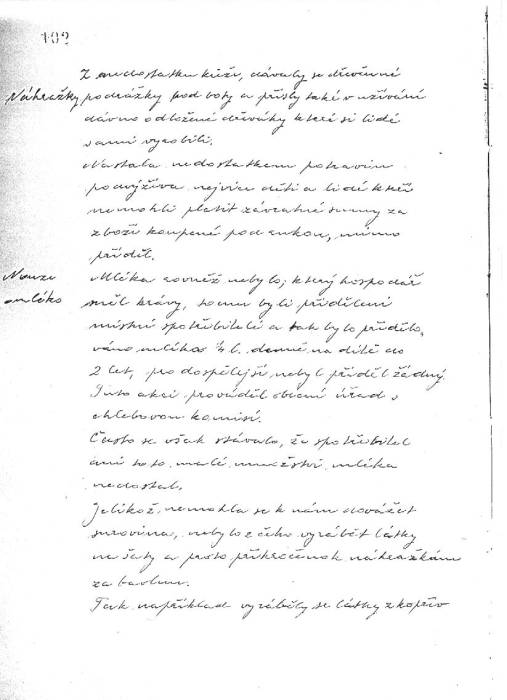 102
Z nedostatku kůží, dávaly se dřevěné
Náhražky podrážky pod boty a přišly také v užívání
dávno odložené dřeváky které si lidé
sami vyrobili.
Nastala nedostatkem potravin
podvýživa nejvíce dětí a lidé kteří
nemohli platit závratné sumy za
zboží koupené pod rukou, mimo
příděl.
Nouze Mléka rovněž nebylo; který hospodář
mléko měl krávy, tomu byli přiděleni
místní spotřebitelé a tak bylo přidělo-
váno mléka ¼ l. denně na dítě do
2 let, pro dospělejší nebyl příděl žádný.
Tuto akci prováděl obecní úřad s
chlebovou komisí.
Často se však stávalo, že spotřebitel
ani toto malé množství mléka
nedostal.
Jelikož nemohla se k nám dovážet
surovina, nebylo z čeho vyrábět látky
na šaty a proto přikročeno k náhražkám
za bavlnu.
Tak například vyráběly se látky z kopřiv